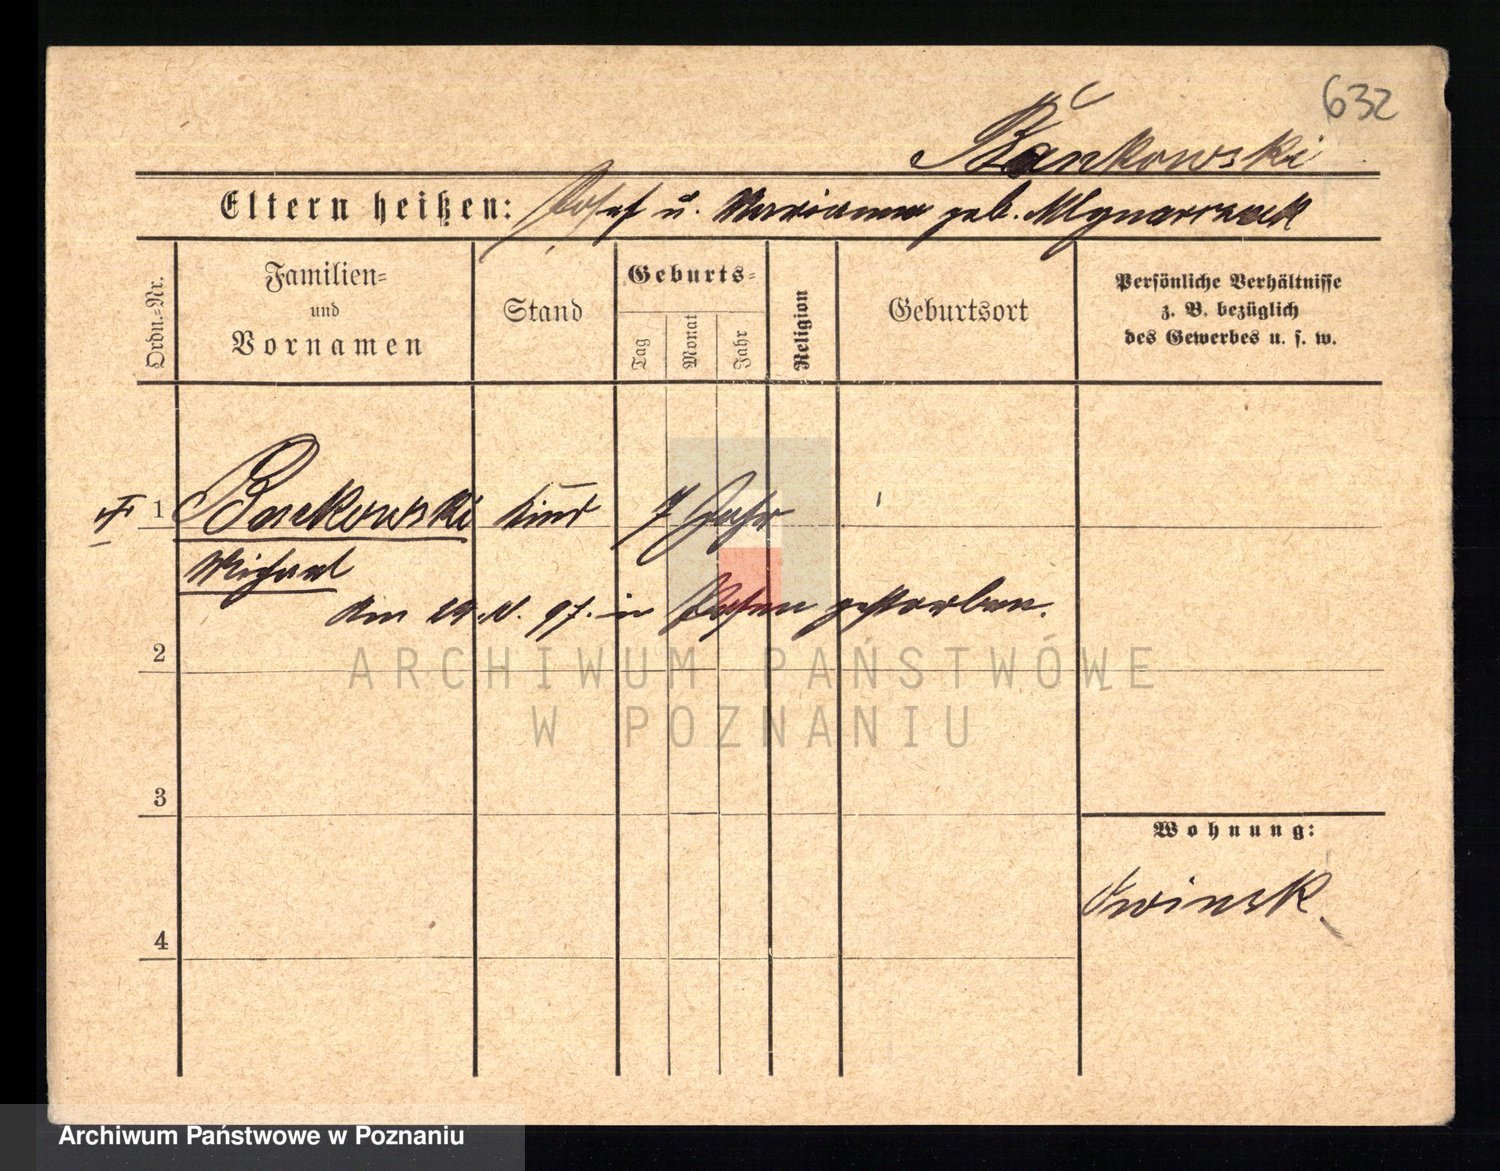 632
Bankowski
Eltern heißen: Josef u. Marianna geb. Mlynarczak
Ordn.=Nr.
Familien=
und
Vornamen
Stand
Geburts=
Tag
Monat
Jahr
Religion
Geburtsort
Persönliche Verhältnisse
z. B. bezüglich
des Gewerbes u. s. w.
1 Bankowski Kind 7 Jahr
Michael
Am in Posen gestorben.
2
3
4
Wohnung:
Owinsk
ARCHIWUM PAŃSTWOWE
W POZNANIU
Archiwum Państwowe w Poznaniu